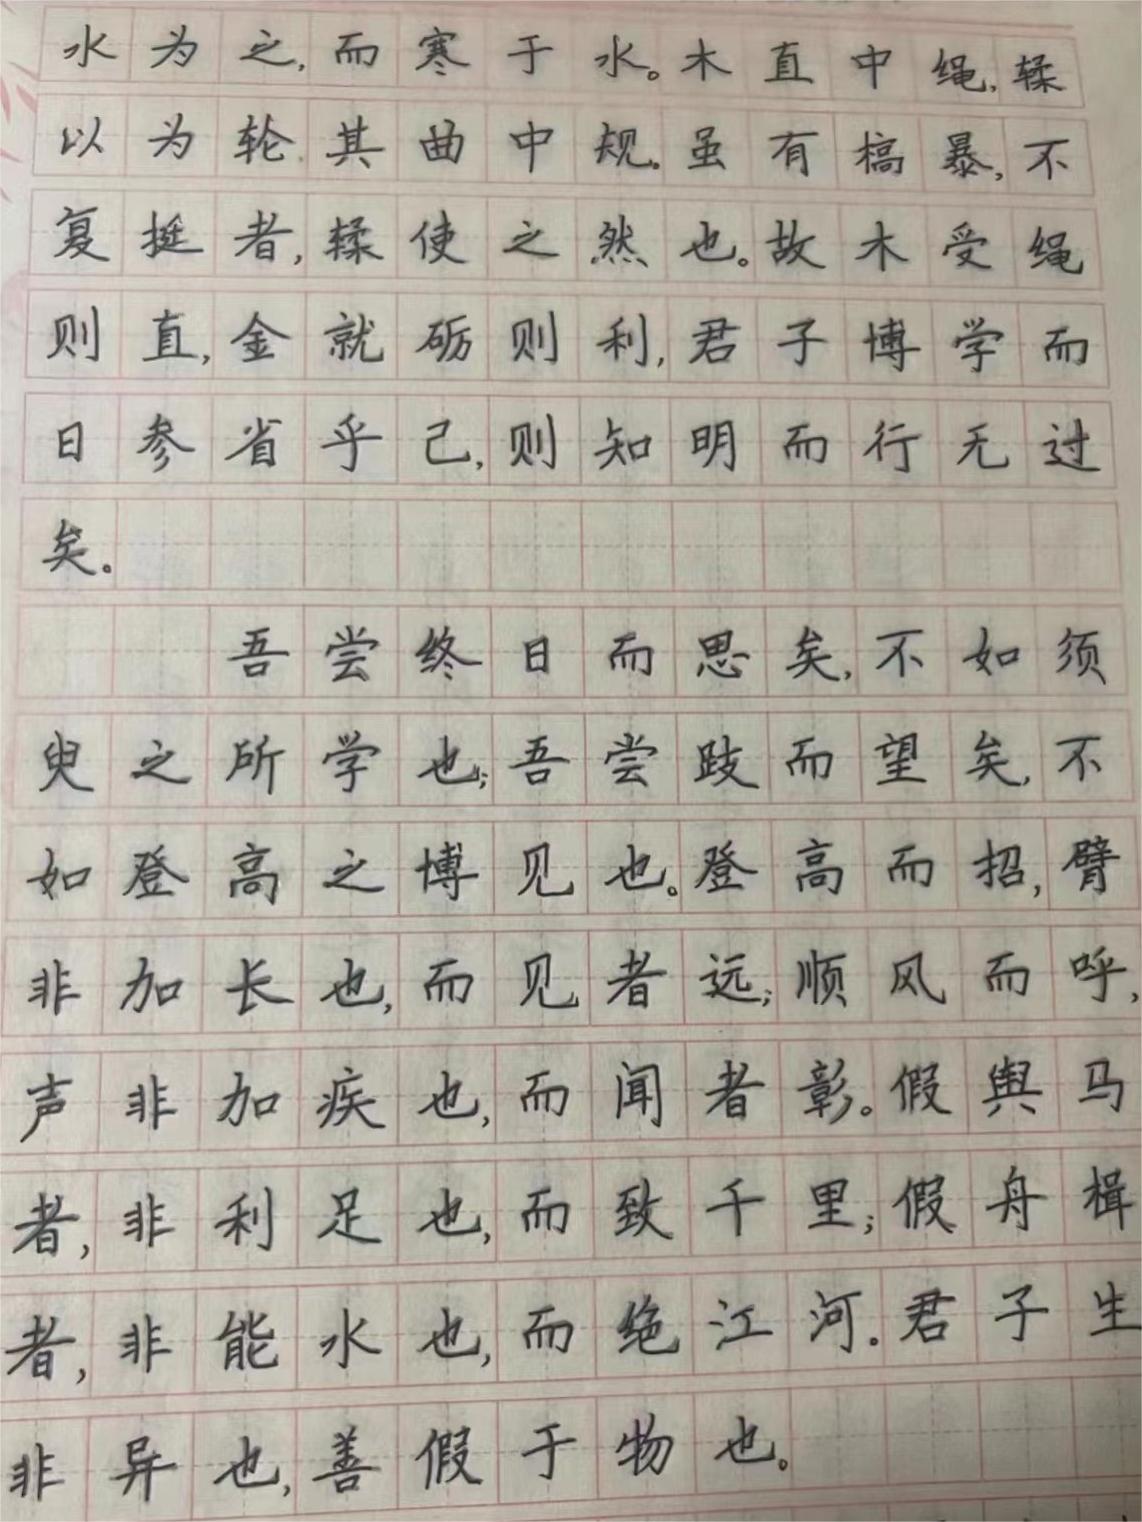 水为之,而寒于水。木直中绳,輮
以为轮,其曲中规。虽有槁暴,不
复挺者,輮使之然也。故木受绳
则直,金就砺则利,君子博学而
日参省乎己,则知明而行无过
矣。
吾尝终日而思矣,不如须
臾之所学也;吾尝跂而望矣,不
如登高之博见也。登高而招,臂
非加长也,而见者远;顺风而呼,
声非加疾也,而闻者彰。假舆马
者,非利足也,而致千里;假舟楫
者,非能水也,而绝江河。君子生
非异也,善假于物也。